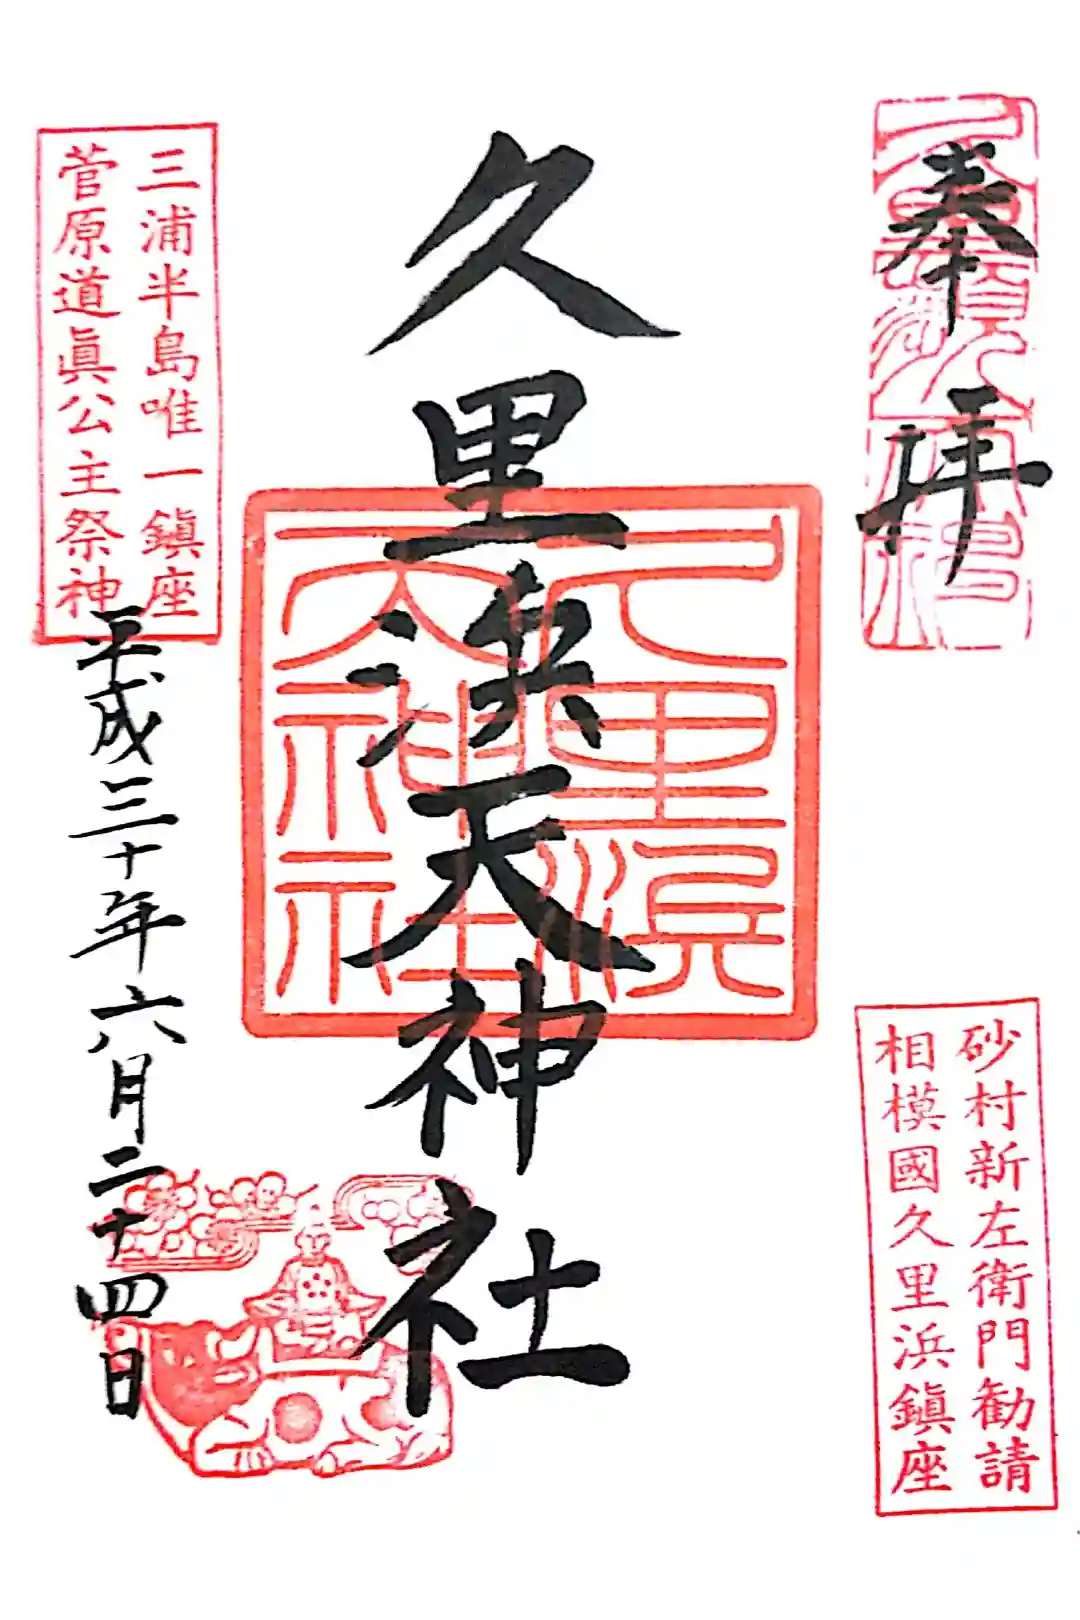 奉拝
砂村新左衛門勧請
相模國久里浜鎮座
久里浜天神社
久里浜
天神社
三浦半島唯一鎮座
菅原道眞公主祭神
平成三十年六月二十四日